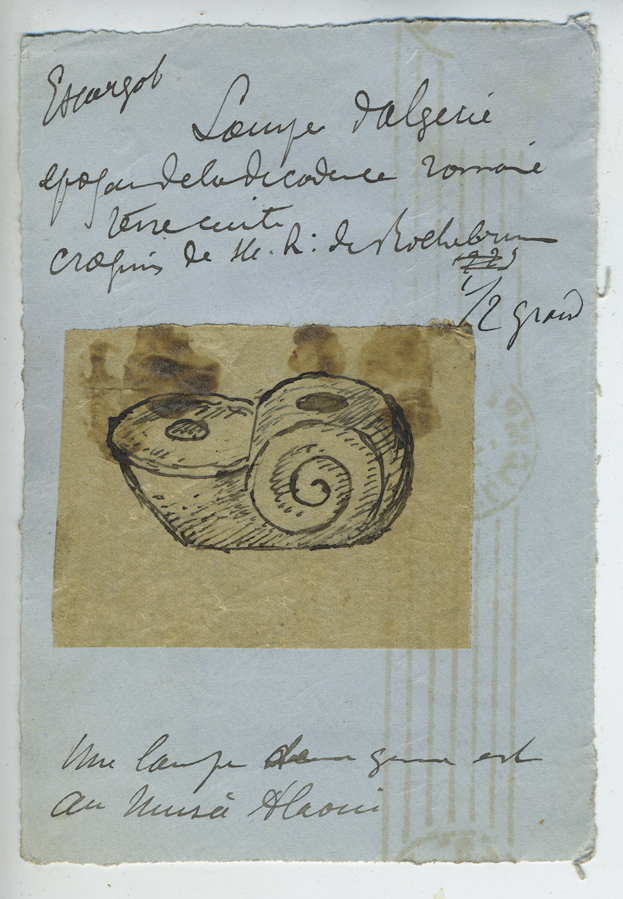 Escargot
Lampe d'Algerie
epoque de la decadence romaine
terre cuite
croquis de M. R. de Rochebrune
1/2 grand
Une lampe genre est
au Musée Alaoui